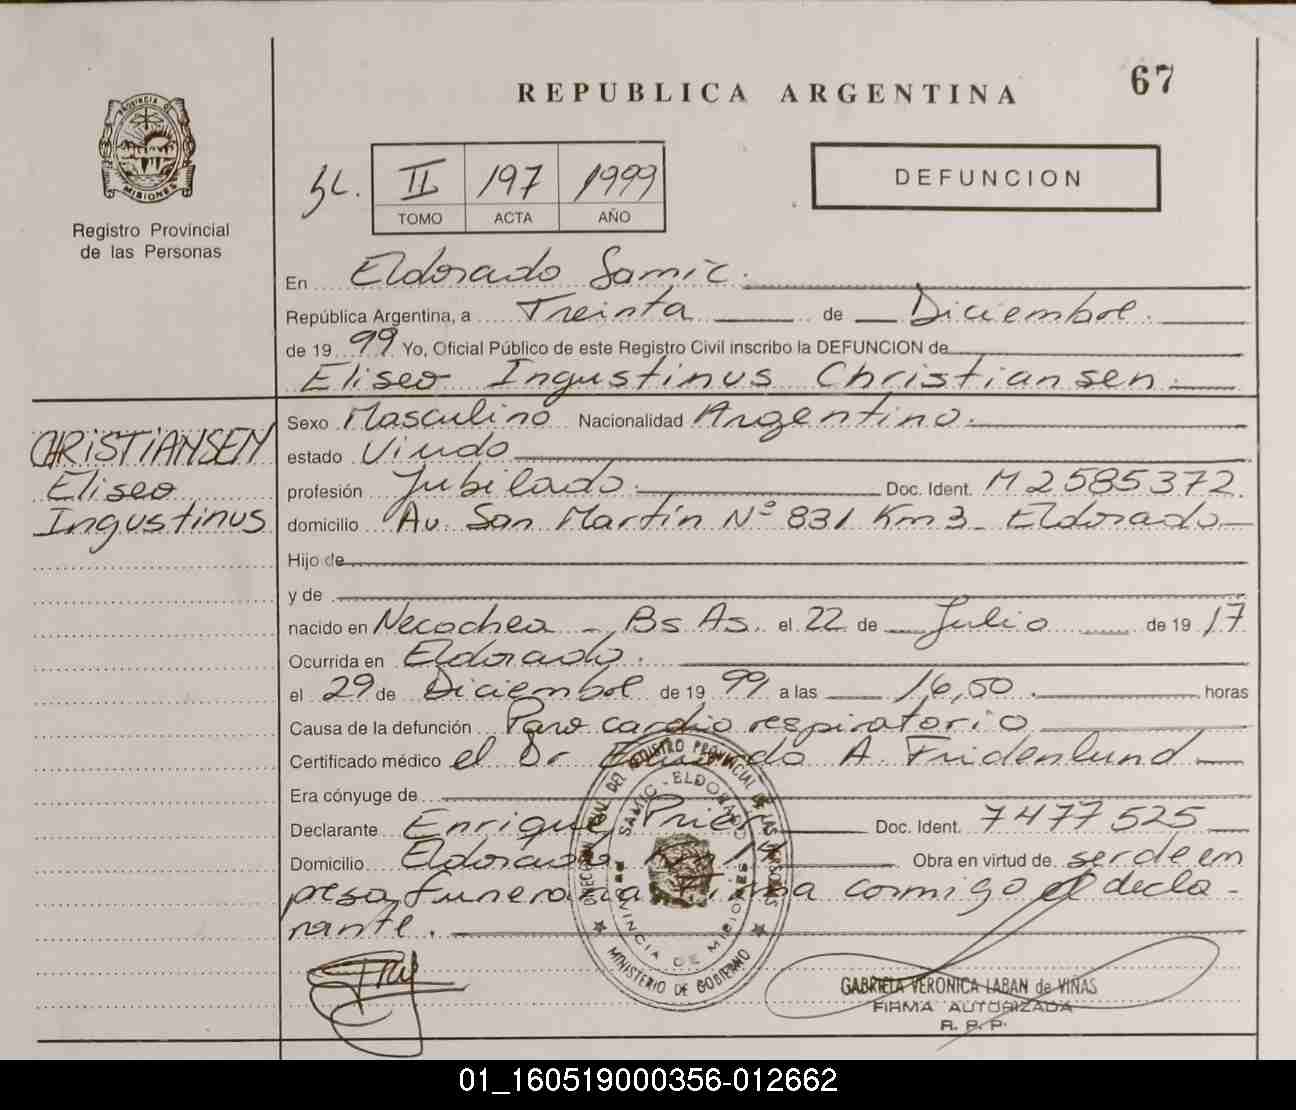 67
REPUBLICA ARGENTINA
PROVINCIA DE MISIONES
Registro Provincial
de las Personas
II 197 1999
TOMO ACTA AÑO
DEFUNCION
En Eldorado Samic.
República Argentina, a Treinta de Diciembre.
de 19 99 Yo, Oficial Público de este Registro Civil inscribo la DEFUNCION de
Eliseo Ingustinus Christiansen.
CHRISTIANSEN
Eliseo
Ingustinus
Sexo Masculino Nacionalidad Argentino.
estado Viudo
profesión Jubilado. Doc. Ident. M 2585372.
domicilio Av. San Martín Nº 831 Km 3 - Eldorado
Hijo de
y de
nacido en Necochea - Bs As. el 22 de Julio de 19 17
Ocurrida en Eldorado.
el 29 de Diciembre de 19 99 a las 16,50. horas
Causa de la defunción Paro cardio respiratorio
Certificado médico el Dr Eduardo A Fridenlund
Era cónyuge de
Declarante Enrique Doc. Ident. 7477525
Domicilio Eldorado Obra en virtud de ser de em
presa funeraria Firma conmigo el decla-
rante.
DIRECCION GRAL DEL REGISTRO PROVINCIAL DE LAS PERSONAS
SAMIC - ELDORADO
PROVINCIA DE MISIONES
MINISTERIO DE GOBIERNO
GABRIELA VERONICA LABAN de VIÑAS
FIRMA AUTORIZADA
R. P. P.
01_160519000356-012662